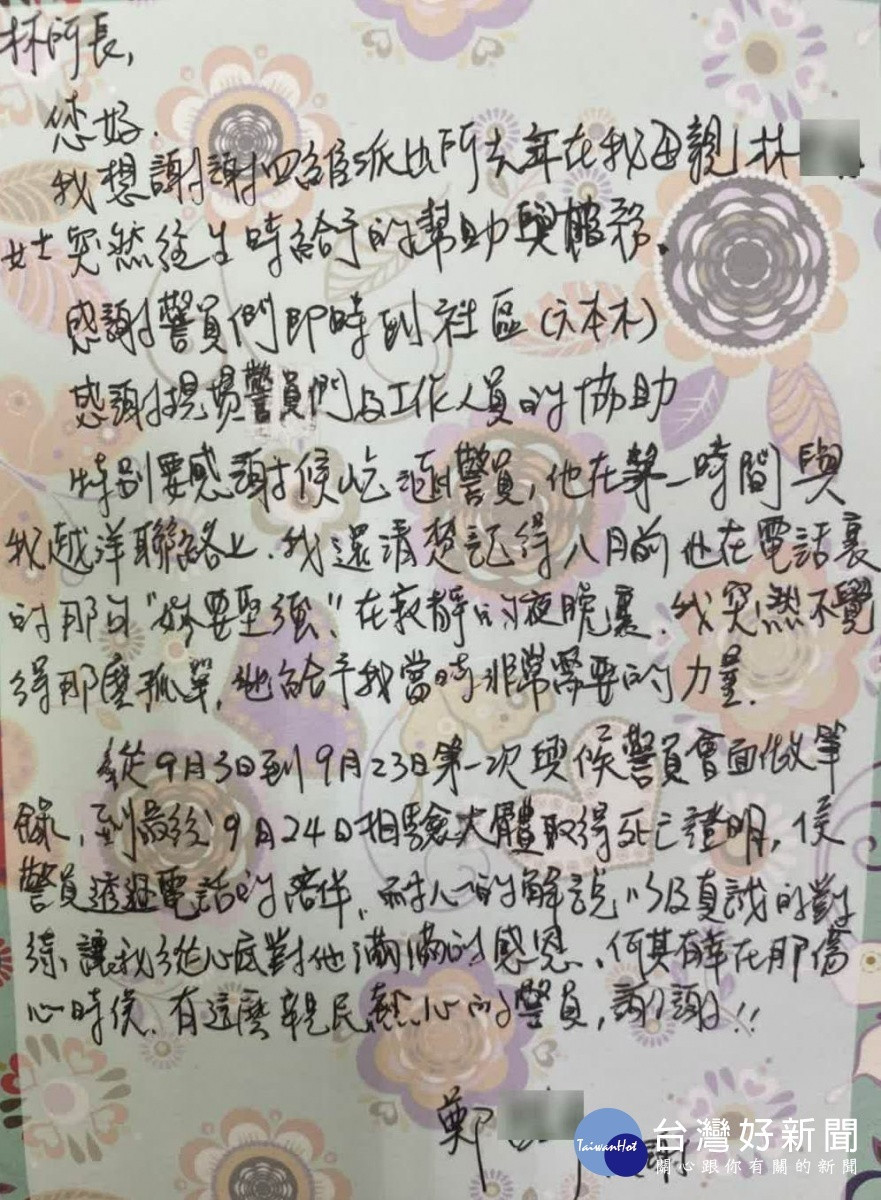 林所長,
您好.
我想謝謝四維派出所去年在我母親林
女士突然往生時給予的幫助與服務.
感謝警員們即時到社區(六本木)
感謝現場警員們與工作人員的協助
特別要感謝侯屹 警員,他在第一時間與
我越洋聯絡上.我還清楚記得八月前他在電話裏
的那句"妳要堅強".在寂靜的夜晚裏.我突然不覺
得那麼孤單,他給予我當時非常需要的力量.
從9月3日到9月23日第一次與侯警員會面做筆
錄,到最後9月24日相驗大體取得死亡證明,侯
警員透過電話的陪伴、耐心的解說以及真誠的對
待,讓我從心底對他滿滿的感恩、何其有幸在那傷
心時候.有這麼親民熱心的警員,謝謝!!
鄭
TaiwanHot
台灣好新聞
關心跟你有關的新聞